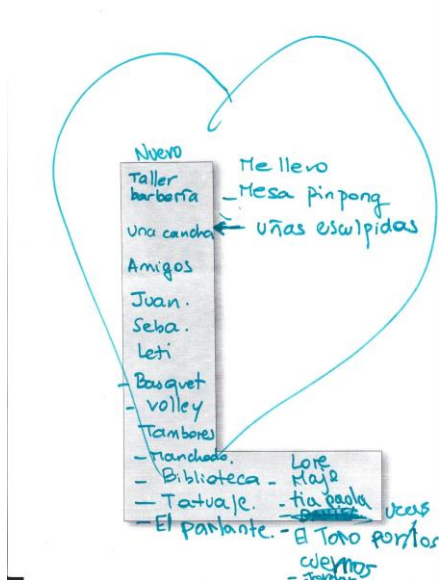 Nuevo
Taller
barbería
una cancha
Amigos
Juan.
Seba.
Leti
- Basquet
- volley
Tambores
- Manchado.
- Biblioteca -
- Tatuaje.
- El parlante.
Me llevo
- Mesa pinpong
uñas esculpidas
Lore
Maje
- tia paola
- El Toro por los
cuernos